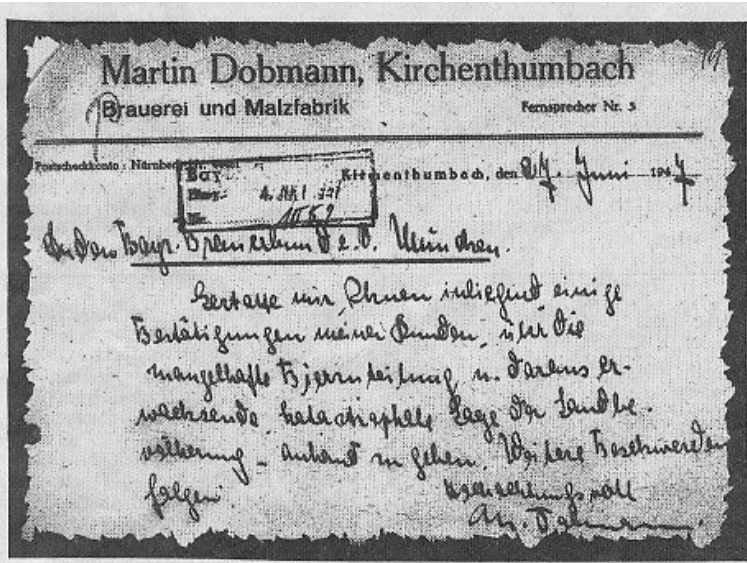 Martin Dobmann, Kirchenthumbach
Brauerei und Malzfabrik Fernsprecher Nr. 5
Postscheckkonto: Kirchenthumbach, den 27. Juni 1947
An den Bayr. Brauerbund e.V. München.
Gestatte mir, Ihnen inliegend einige
Bestätigungen meiner Kunden, über die
mangelhafte Bierzuteilung u. daraus er-
wachsende katastrophale Lage der Landbe-
völkerung - anhand zu geben. Weitere Beschwerden
folgen.
Hochachtungsvoll